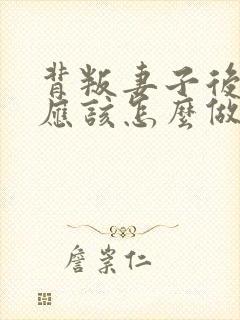 背叛妻子後
應該怎麼做
詹崇仁